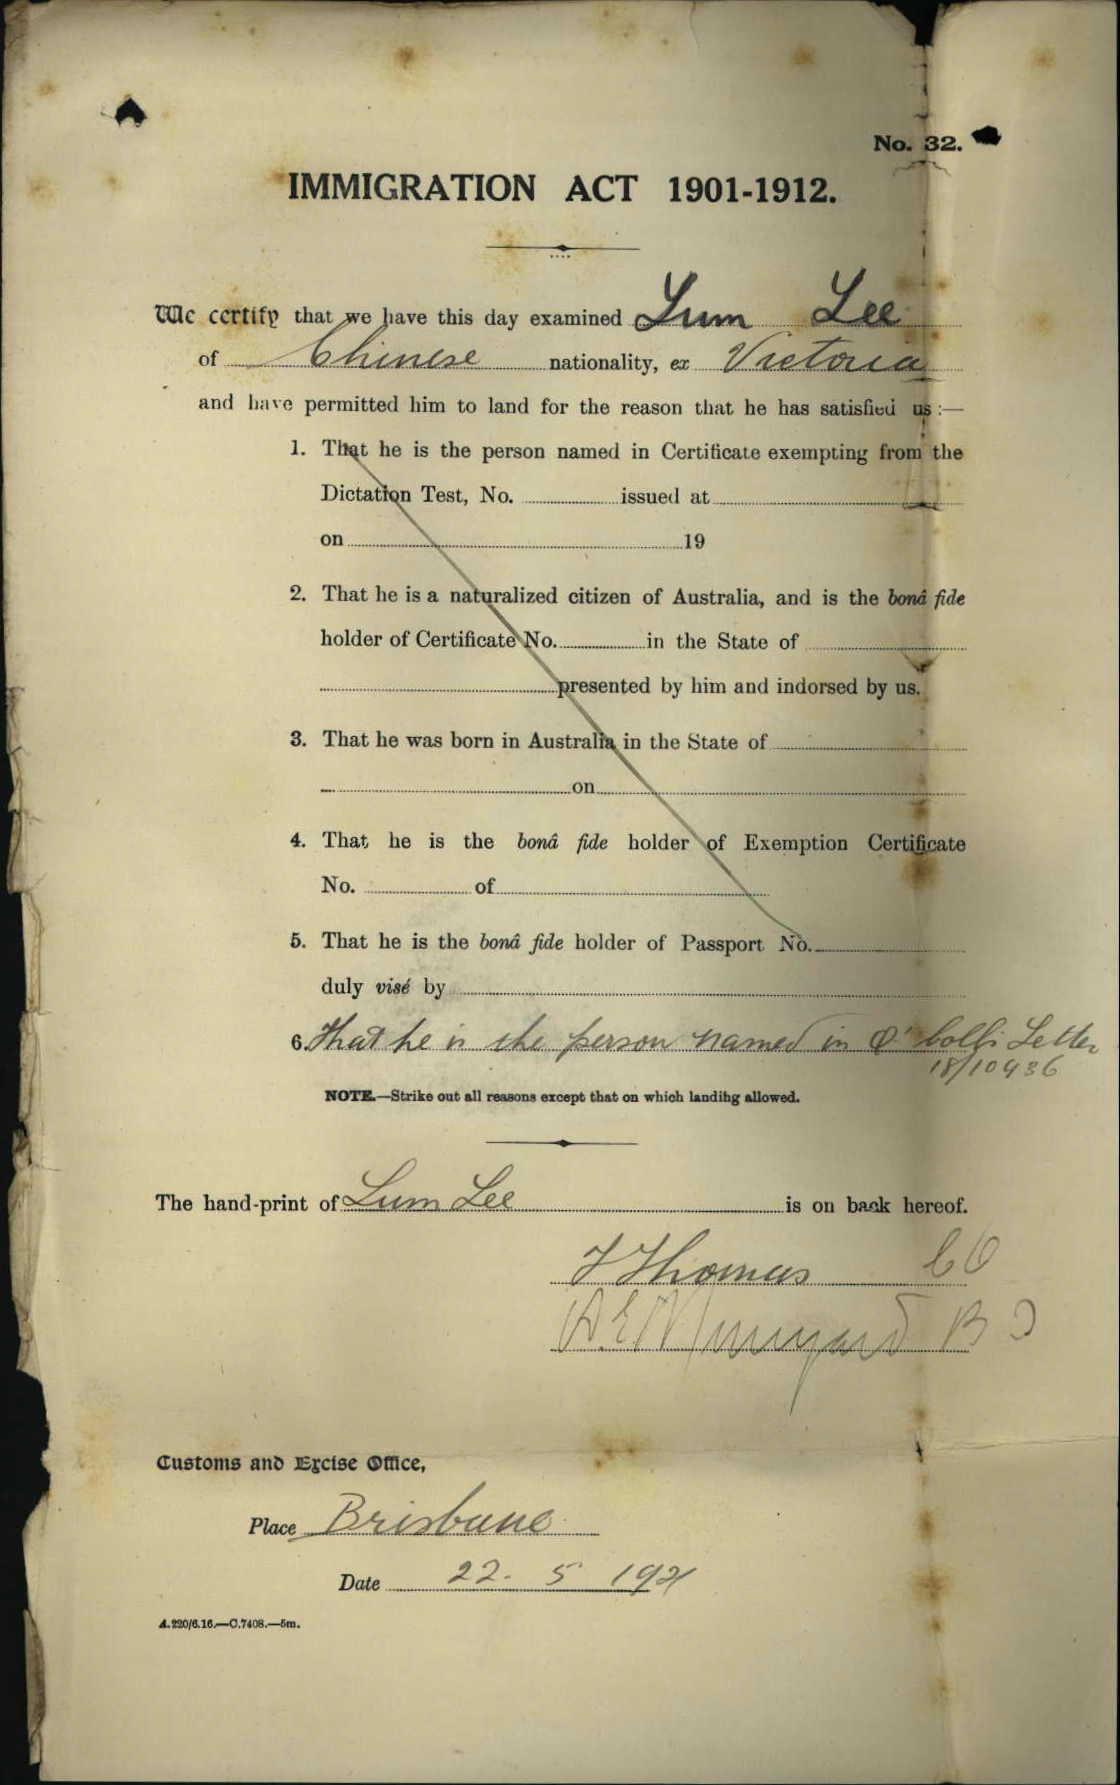 No. 32.
IMMIGRATION ACT 1901-1912.
We certify that we have this day examined Lum Lee
of Chinese nationality, ex Victoria
and have permitted him to land for the reason that he has satisfied us :—
1. That he is the person named in Certificate exempting from the
Dictation Test, No. issued at
on 19
2. That he is a naturalized citizen of Australia, and is the bonâ fide
holder of Certificate No. in the State of
presented by him and indorsed by us.
3. That he was born in Australia in the State of
on
4. That he is the bonâ fide holder of Exemption Certificate
No. of
5. That he is the bonâ fide holder of Passport No.
duly visé by
6. That he is the person named in Letter
18/10436
NOTE.—Strike out all reasons except that on which landing allowed.
The hand-print of Lum Lee is on back hereof.
F Thomas
Customs and Excise Office,
Place Brisbane
Date 22. 5 1921
A.220/6.16.—C.7408.—5m.